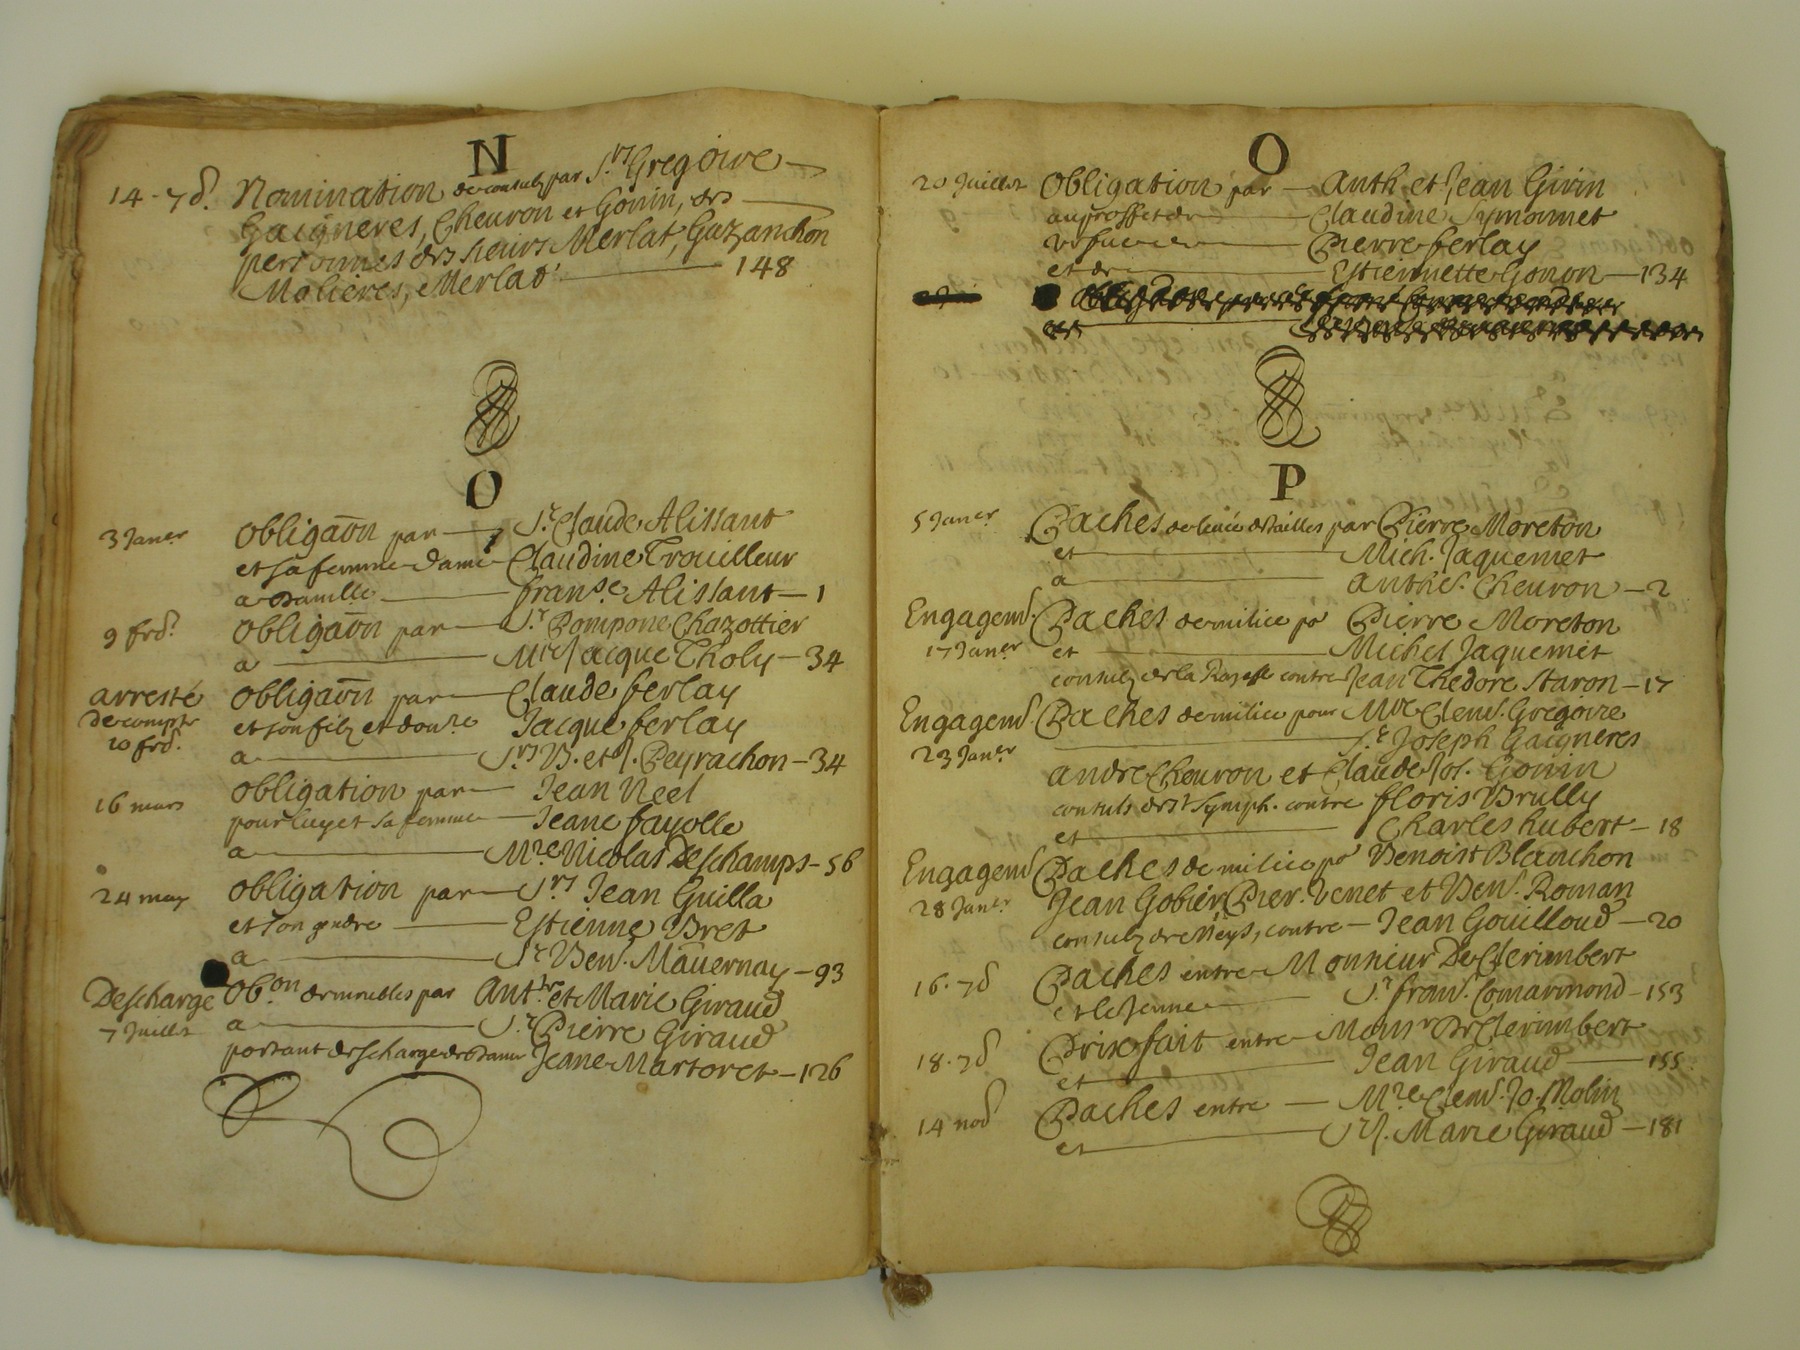 N
14 - 7b. Nomination de consulz par Srs Gregoire
Gaigneres, Cheuron et Gonin, des
personnes des sieurs Merlat, Guzanchon
Molieres, Merlat 148
O
3 Janer Obligaôn par Sr. Claude Alissant
et sa femme dame Claudine Trouilleur
a Damlle franse Alissant - 1
9 frd. Obligaôn par Sr Pompone Chazottier
a Mre Jacque Tholy - 34
arresté Obligaôn par Claude ferlay
de compte et son filz et donre Jacque ferlay
10 frd. a Srs B. et J. Peyrachon - 34
16 mars Obligation par Jean Neel
pour luy et sa femme Jeane fayolle
a Mre Nicolas Deschamps - 56
24 may Obligation par Srs Jean Guilla
et son gendre Estienne Bret
a Sr Ben. Mauernay - 93
Descharge Obon de meubles par Antre et Marie Giraud
7 Juillet a Sr Pierre Giraud
portant descharge de dame Jeane Martoret - 126
O
20 Juillet Obligation par Anth et Jean Givin
au proffit de Claudine Symonnet
Pierre ferlay
et de Estiennette Gonon - 134
et
P
5 Janer Paches de leuée de tailles par Pierre Moreton
et Mich. Jaquemet
a Anthe. Cheuron - 2
Engagemt. Paches de milice pr Pierre Moreton
17 Janer et Michel Jaquemet
consulz de la Rajasse contre Jean Thedore Staron - 17
Engagemt. Paches de milice pour Mre Clemt. Gregoire
23 Janer Sr Joseph Gaigneres
andre Cheuron et Claude Jos. Gonin
consuls de St Symph. contre floris Brully
et Charles hubert - 18
Engagemt Paches de milice pr Benoist Blanchon
28 Janer Jean Gobier, Pier. Venet et Bent. Roman
consulz de Meys, contre Jean Gouilloud - 20
16. 7b Paches entre Monsieur De Clerimbert
et le Sr fran. Comarmond - 153
18. 7b Prix fait entre Monsr De Clerimbert
et Jean Giraud 155
14 nob Paches entre Mre Clemt. Jo. Molin
et Sr J. Marie Giraud - 181